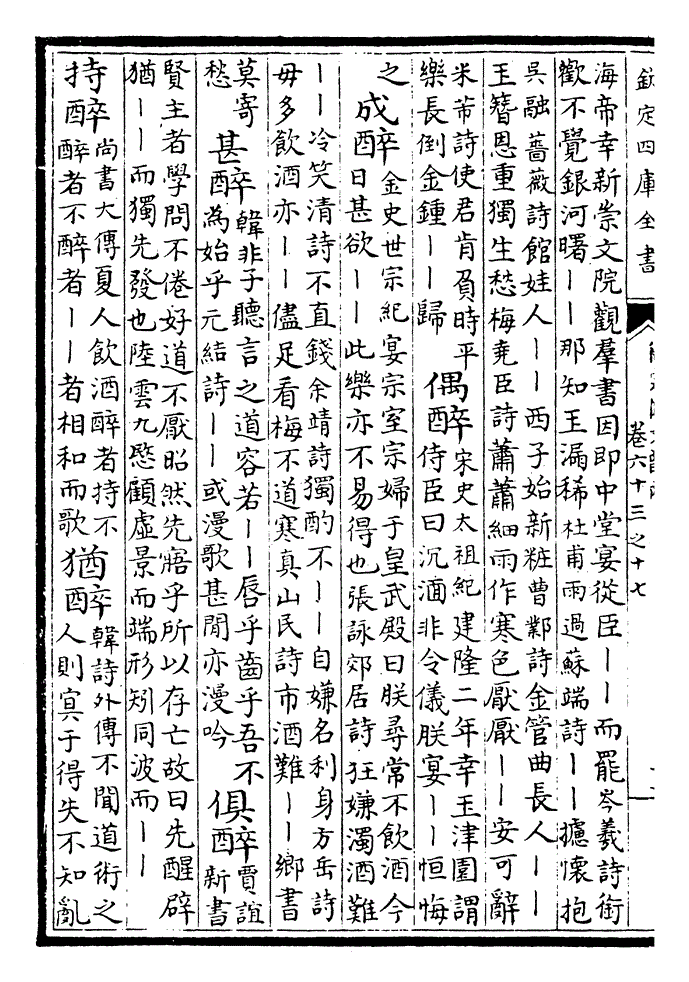 欽定四庫全書
卷六十三之十七
海帝幸新崇文院觀羣書因即中堂宴從臣丨丨而罷岑羲詩銜
歡不覺銀河曙丨丨那知玉漏稀杜甫雨過蘇端詩丨丨攄懷抱
吳融薔薇詩館娃人丨丨西子始新粧曹鄴詩金管曲長人丨丨
玉簪恩重獨生愁梅堯臣詩蕭蕭細雨作寒色厭厭丨丨安可辭
米芾詩使君肯負時平
樂長倒金鍾丨丨歸
偶醉
宋史太祖紀建隆二年幸玉津園謂
侍臣曰沉湎非令儀朕宴丨丨恒悔
之
成醉
金史世宗紀宴宗室宗婦于皇武殿曰朕尋常不飲酒今
日甚欲丨丨此樂亦不易得也張詠郊居詩狂嫌濁酒難
丨丨冷笑清詩不直錢余靖詩獨酌不丨丨自嫌名利身方岳詩
毋多飲酒亦丨丨儘足看梅不道寒真山民詩市酒難丨丨鄉書
莫寄
愁
甚醉
韓非子聽言之道容若丨丨唇乎齒乎吾不
為始乎元結詩丨丨或漫歌甚閒亦漫吟
俱醉
賈誼
新書
賢主者學問不倦好道不厭昭然先寤乎所以存亡故曰先醒辟
猶丨丨而獨先發也陸雲九愍顧虛景而端形矧同波而丨丨
持醉
尚書大傳夏人飲酒醉者持不
醉者不醉者丨丨者相和而歌
猶醉
韓詩外傳不聞道術之
人則冥于得失不知亂